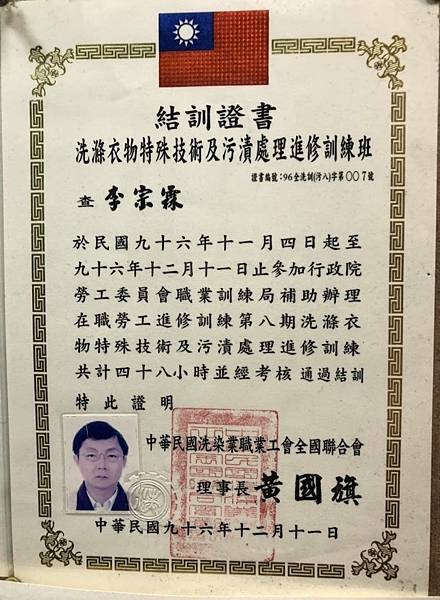 結訓證書
洗滌衣物特殊技術及污漬處理進修訓練班
證書編號：96全洗訓(污八)字第〇〇7號
查 李宗霖
於民國九十六年十一月四日起至
九十六年十二月十一日止參加行政院
勞工委員會職業訓練局補助辦理
在職勞工進修訓練第八期洗滌衣
物特殊技術及污漬處理進修訓練
共計四十八小時並經考核通過結訓
特此證明
中華民國洗染業職業工會全國聯合會
理事長 黃國旗
中華民國九十六年十二月十一日